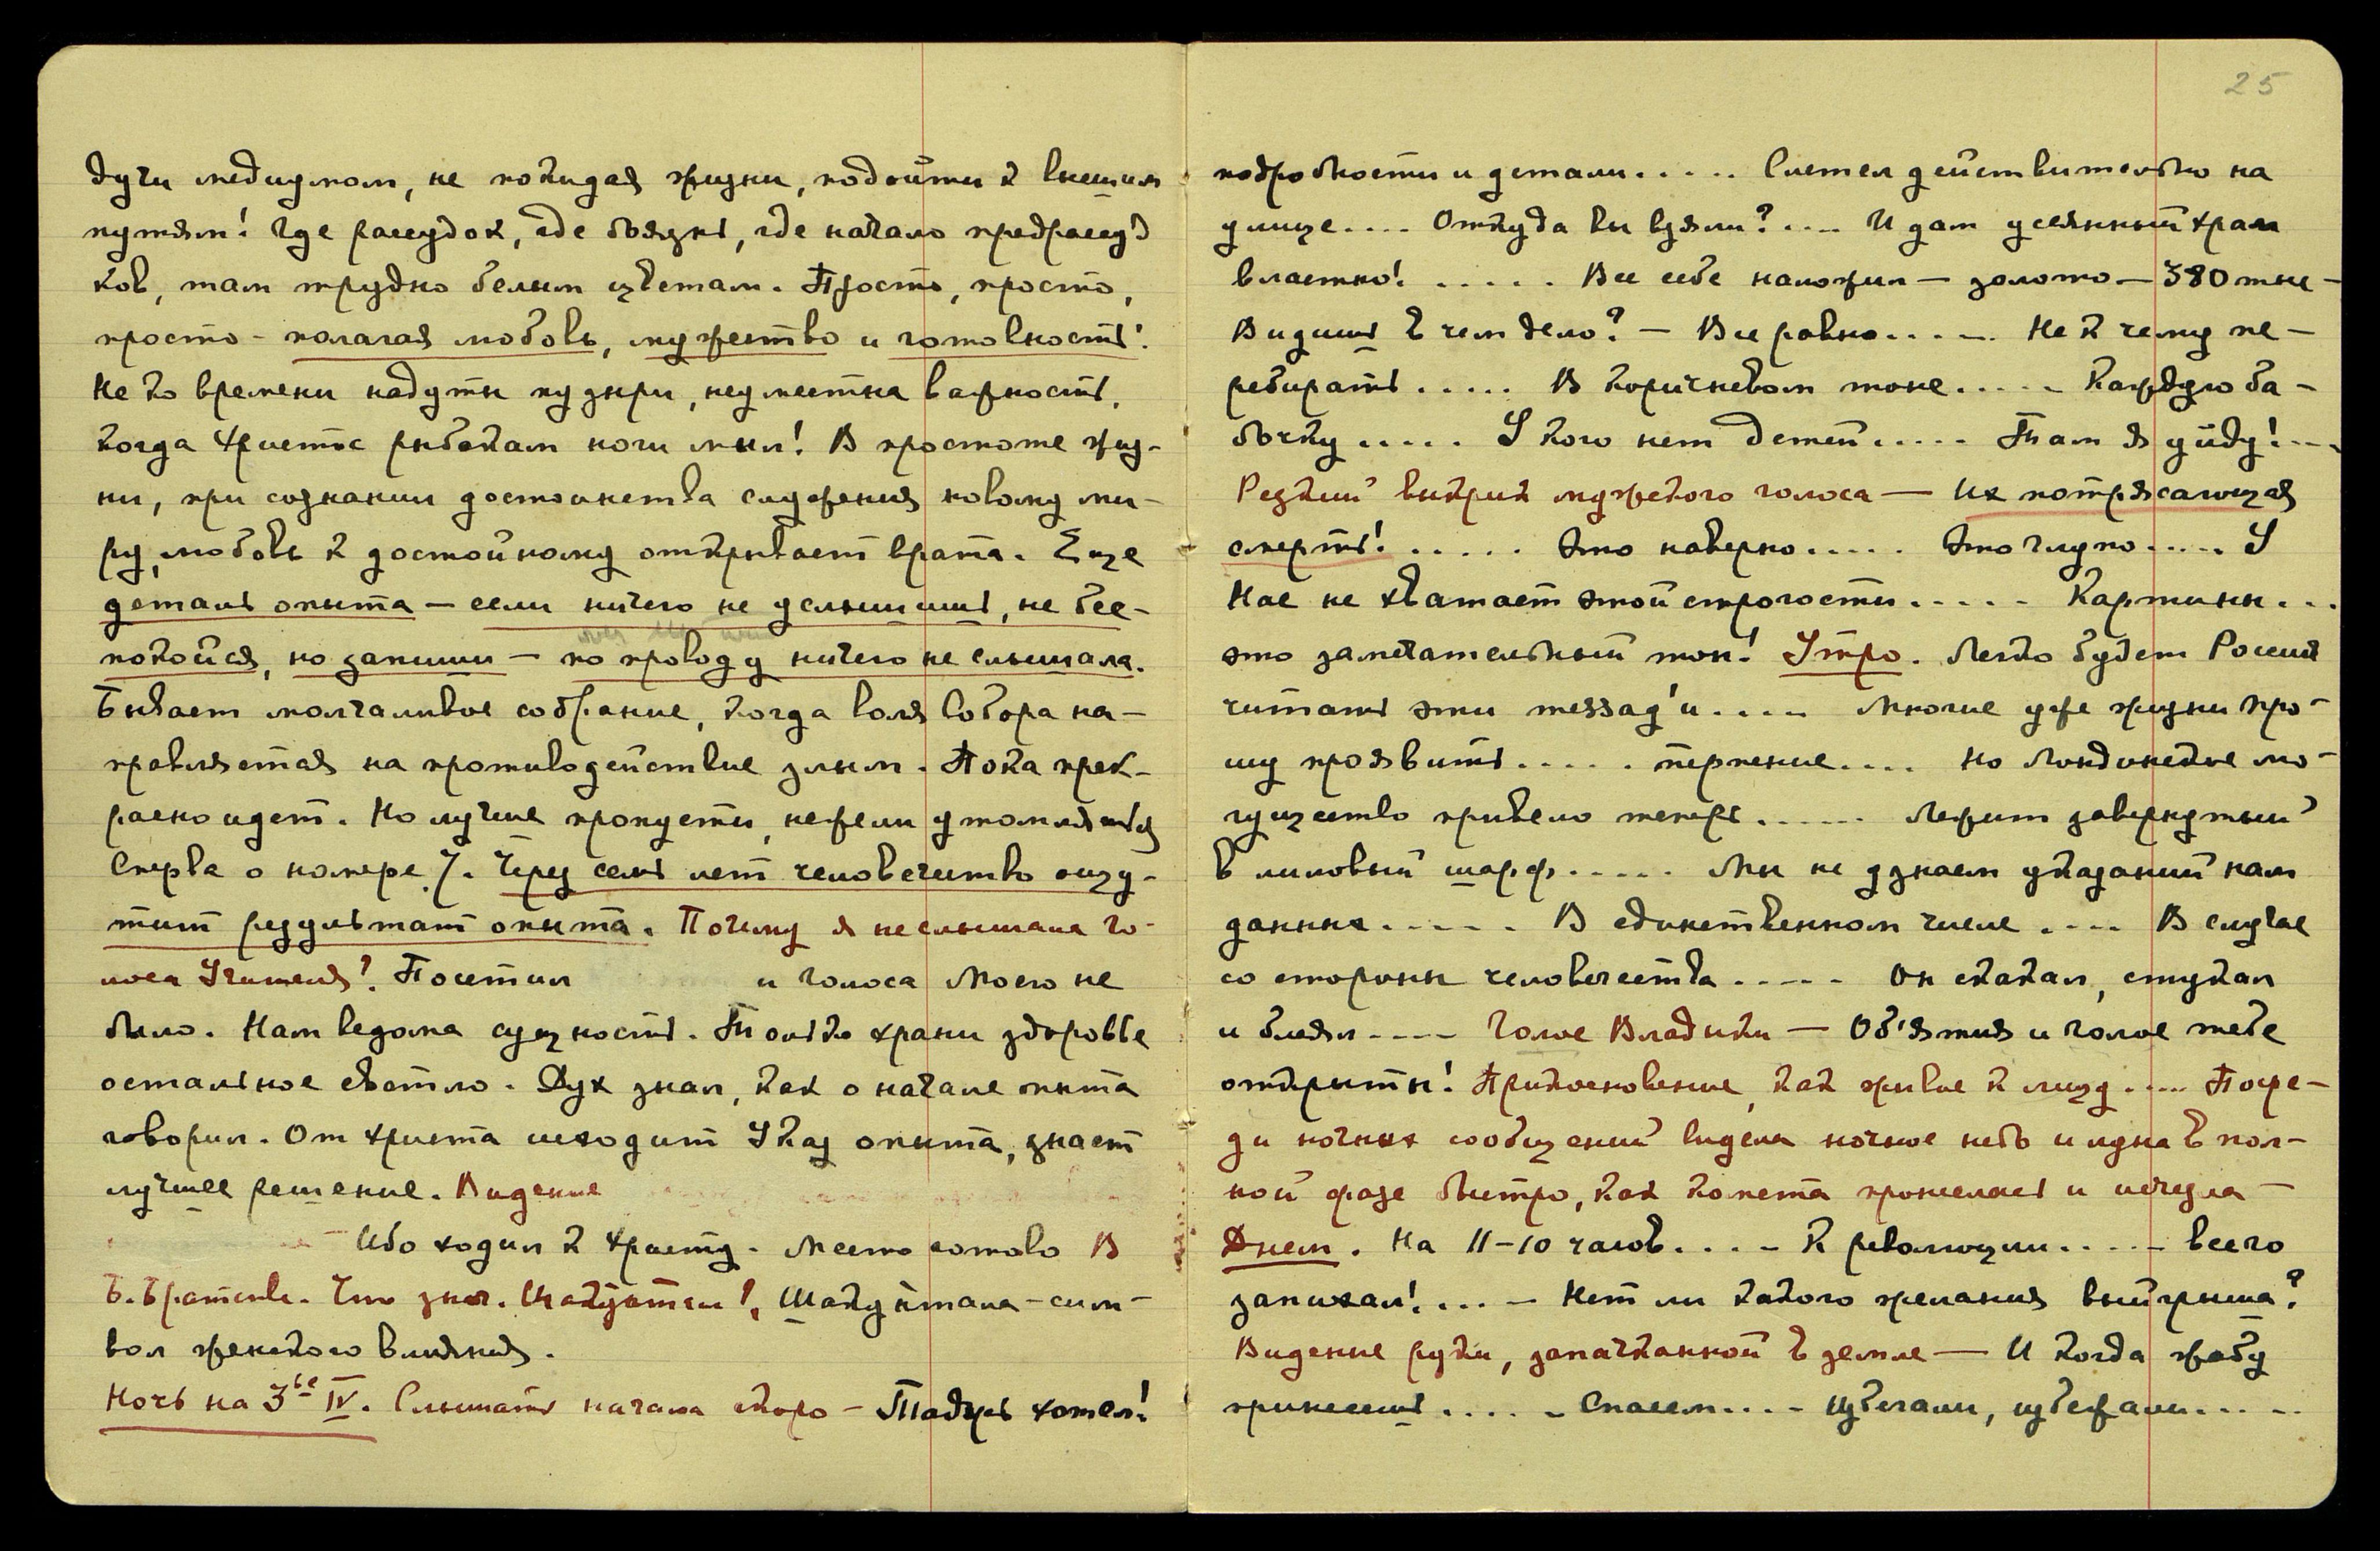 дучи медиумом, не покидая жизни, подойти к высшим
путям! Где рассудок, где боязнь, где начало предрассуд
ков, там трудно белым цветам. Просто, просто,
просто – полагая любовь, мужество и готовность!
Не ко времени надуты пузыри, неуместна важность,
когда Христос рыбакам ноги мыл! В простоте жиз-
ни, при сознании достоинства служения новому ми-
ру, любовь к достойному открывает врата. Еще
деталь опыта – если ничего не услышишь, не бес-
покойся, но запиши – по проводу ничего не слышала.
Бывает молчаливое собрание, когда воля Собора на-
правляется на противодействие злым. Пока прек-
расно идет. Но лучше пропусти, нежели утомляться
Сперва о номере 7. Через семь лет человечество ощу-
тит результат опыта. Почему я не слышала го-
лоса Учителя? Посетил и голоса Моего не
было. Нам ведома сущность. Только храни здоровье
остальное светло. Дух знал, как о начале опыта
говорил. От Христа исходит Указ опыта, знает
лучшее решение. Видение
Ибо ходил к Христу. Место готово В
Б. Братстве. Что знач. Шакунтала?, Шакунтала – сим-
вол женского влияния.
Ночь на 3ье IV. Слышать начала скоро – Тадзрь хотел!
25
подробности и детали..... Слетел действительно на
улице.... Откуда вы взяли?.... И дат усеянный храм
властно!...... Все себе наложил – золото – 380 тне –
Видишь в чем дело? – Все равно..... Не к чему пе-
ребирать..... В коричневом тоне..... Каждую ба-
бочку..... У кого нет детей..... Там я уйду!...
Резкий выкрик мужского голоса — Их потрясающая
смерть!...... Это наверно..... Это глупо..... У
нас не хватает этой строгости..... Картины...
это замечательный тон! Утро. Легко будет России
читать эти messag'и.... Многие уже жизни про-
шу проявить..... терпение.... Но Лондонское мо-
гущество привело теперь...... Лежит завернутый
в лиловый шарф..... Мы не узнаем указаний нам
данных..... В единственном числе.... В случае
со стороны человечества..... Он скакал, стукал
и блеял.... Голос Владыки — Об'ятия и голос тебе
открыты! Прикосновение, как живое к лицу..... Посре-
ди ночных сообщений видела ночное небо и луна в пол-
ной фазе быстро, как комета пронеслась и исчезла –
Днем. На 11–10 часов..... К революции..... всего
запихал!.... Нет ли какого желания выигрыша?
Видение руки, запачканной в земле — И когда жабу
принесешь..... Спасем.... избегали, избежали.....